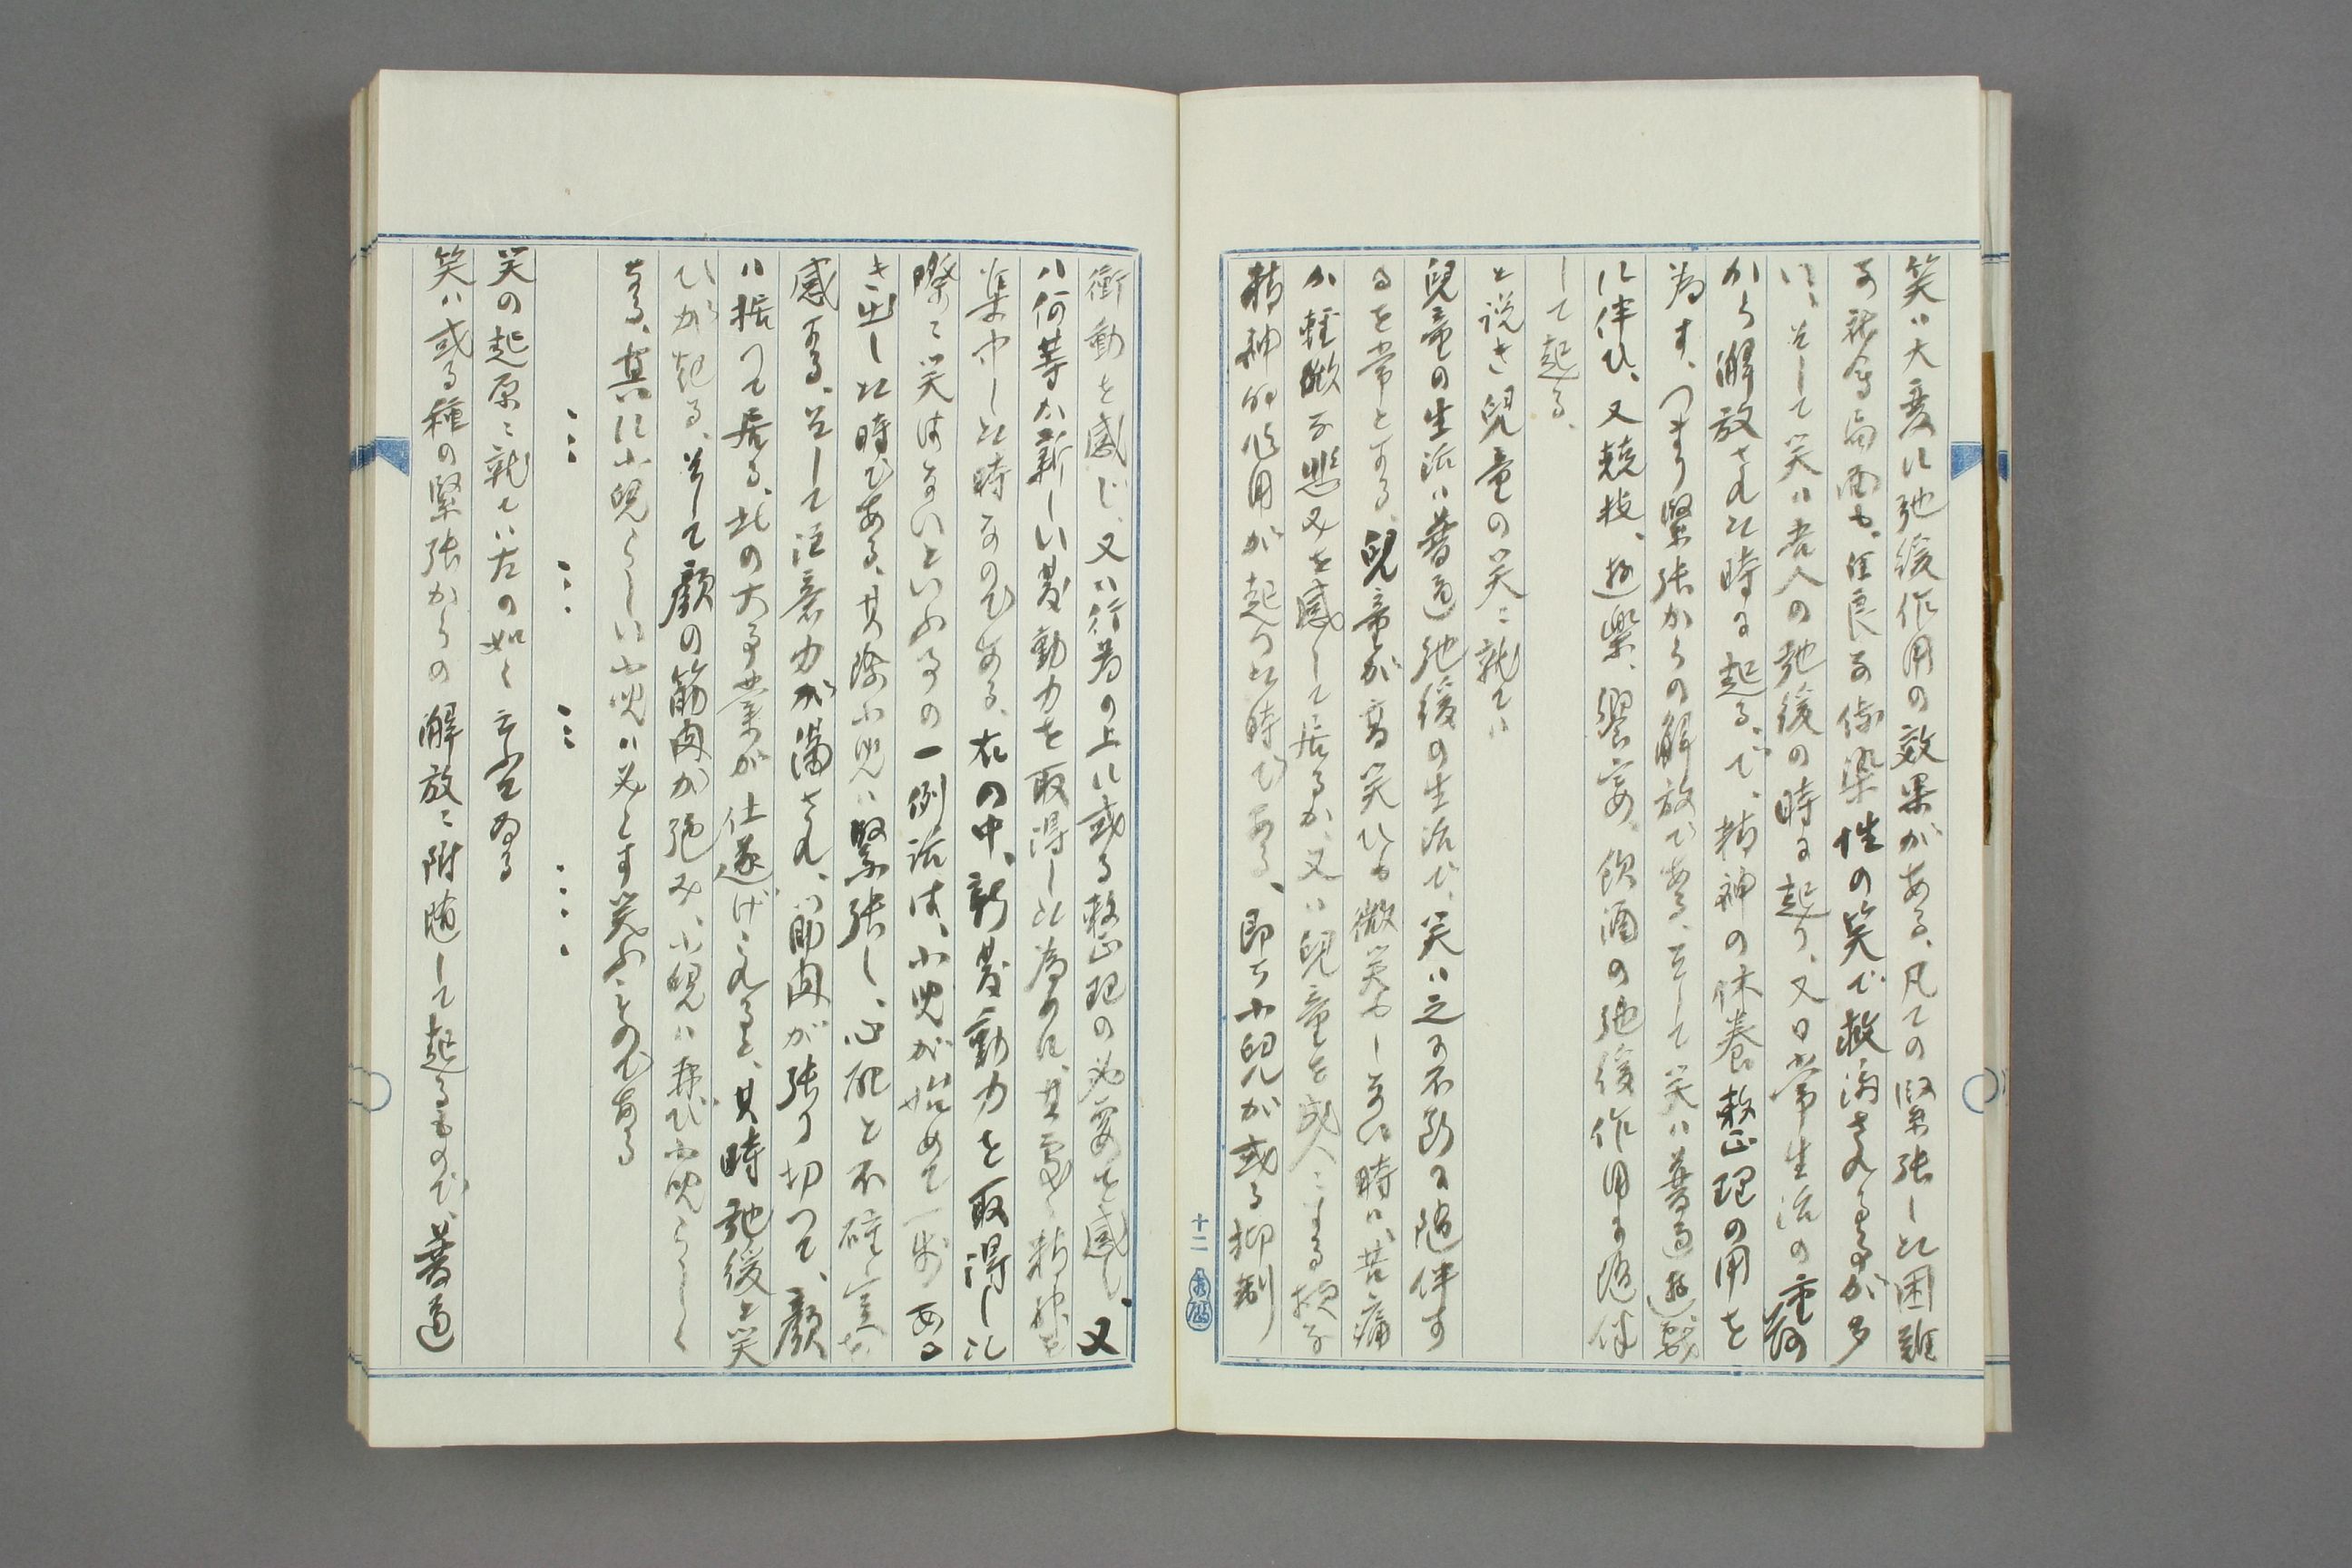 笑ハ大変に弛緩作用の效果がある、凡ての緊張した困難
な社会局面も、佳良な伝染性の笑で救済されるヿが多
い、そして笑ハ吾人の弛緩の時に起り、又日常生活の重荷
から解放された時に起る、で、精神の休養整理の用を
為す、つまり緊張からの解放である、そして笑ハ普通遊戯
に伴ひ、又競技、遊楽、饗宴、飲酒の弛緩作用に随伴
して起る、
と説き児童の笑ニ就てハ
児童の生活ハ普通弛緩の生活で、笑ハ之に不断に随伴す
るを常とする、児童が高笑ひも微笑もしない時ハ、苦痛
か軽微な悲みを感して居るか、又ハ児童を成人にする様な
精神的作用が起つた時である、即ち小児が或る抑制
十二
衝動を感じ、又ハ行為の上に或る整理の必要を感し、又
ハ何等か新しい発動力を取得した為めに、其処へ精神を
集中した時なのである、右の中、新発動力を取得した
際に笑はないといふヿの一例話は、小児が始めて一歩ある
き出した時である、其際小児ハ緊張し、心配と不確実を
感ずる、そして注意力が満され、筋肉が張り切つて、顔
ハ据つて居る、此の大事業が仕遂げられると、其時弛緩と笑
ひが起る、そして顔の筋肉が弛み、小児ハ再び小児らしく
なる、真に小児らしい小児ハ必らす笑ふものである
笑の起原ニ就てハ左の如く云ふて居る
笑ハ或る種の緊張からの解放ニ附随して起るもので、普通